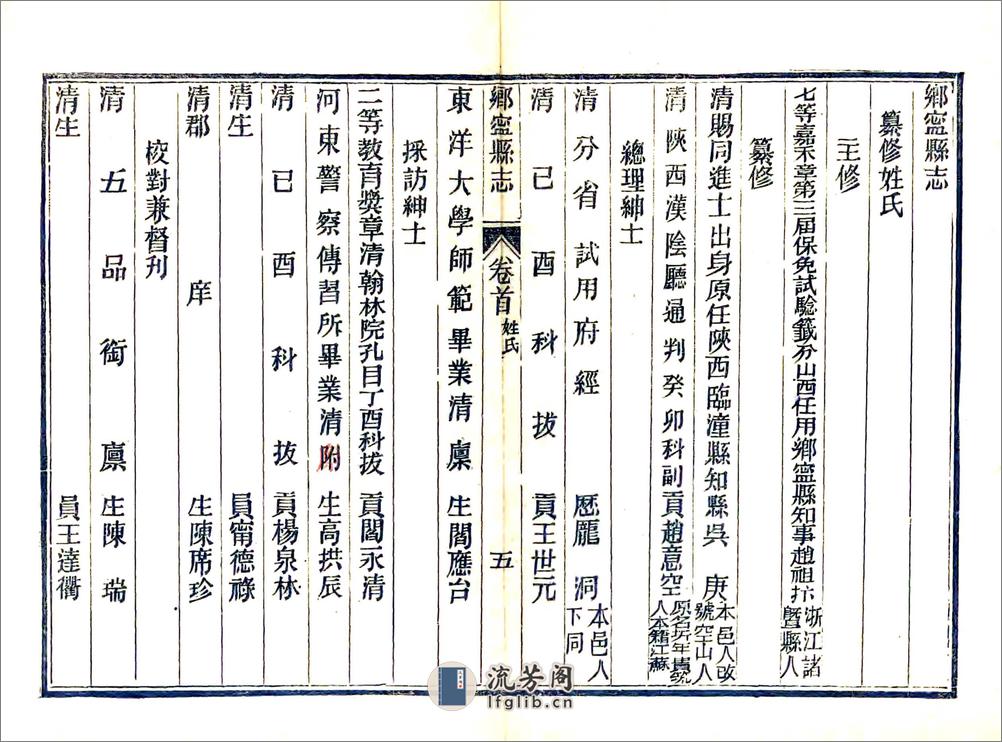 鄉寍縣志
纂修姓氏
主修
七等嘉禾章第三屆保免試驗籤分山西任用鄉寍縣知事趙祖抃浙江諸暨縣人
纂修
清賜同進士出身原任陝西臨潼縣知縣吳庚本邑人改號空山人
清陝西漢陰廳通判癸卯科副貢趙意空原名圻年號人本籍江蘇
總理紳士
清分省試用府經歷龎洞本邑人下同
清己酉科拔貢王世元
鄉寍縣志 卷首 姓氏 五
東洋大學師範畢業清廩生閻應台
採訪紳士
二等教育奬章清翰林院孔目丁酉科拔貢閻永清
河東警察傳習所畢業清附生高拱辰
清己酉科拔貢楊泉林
清生員甯德祿
清郡庠生陳席珍
校對兼督刋
清五品銜廪生陳瑞
清生員王達衢
流芳阁
lfglib.cn